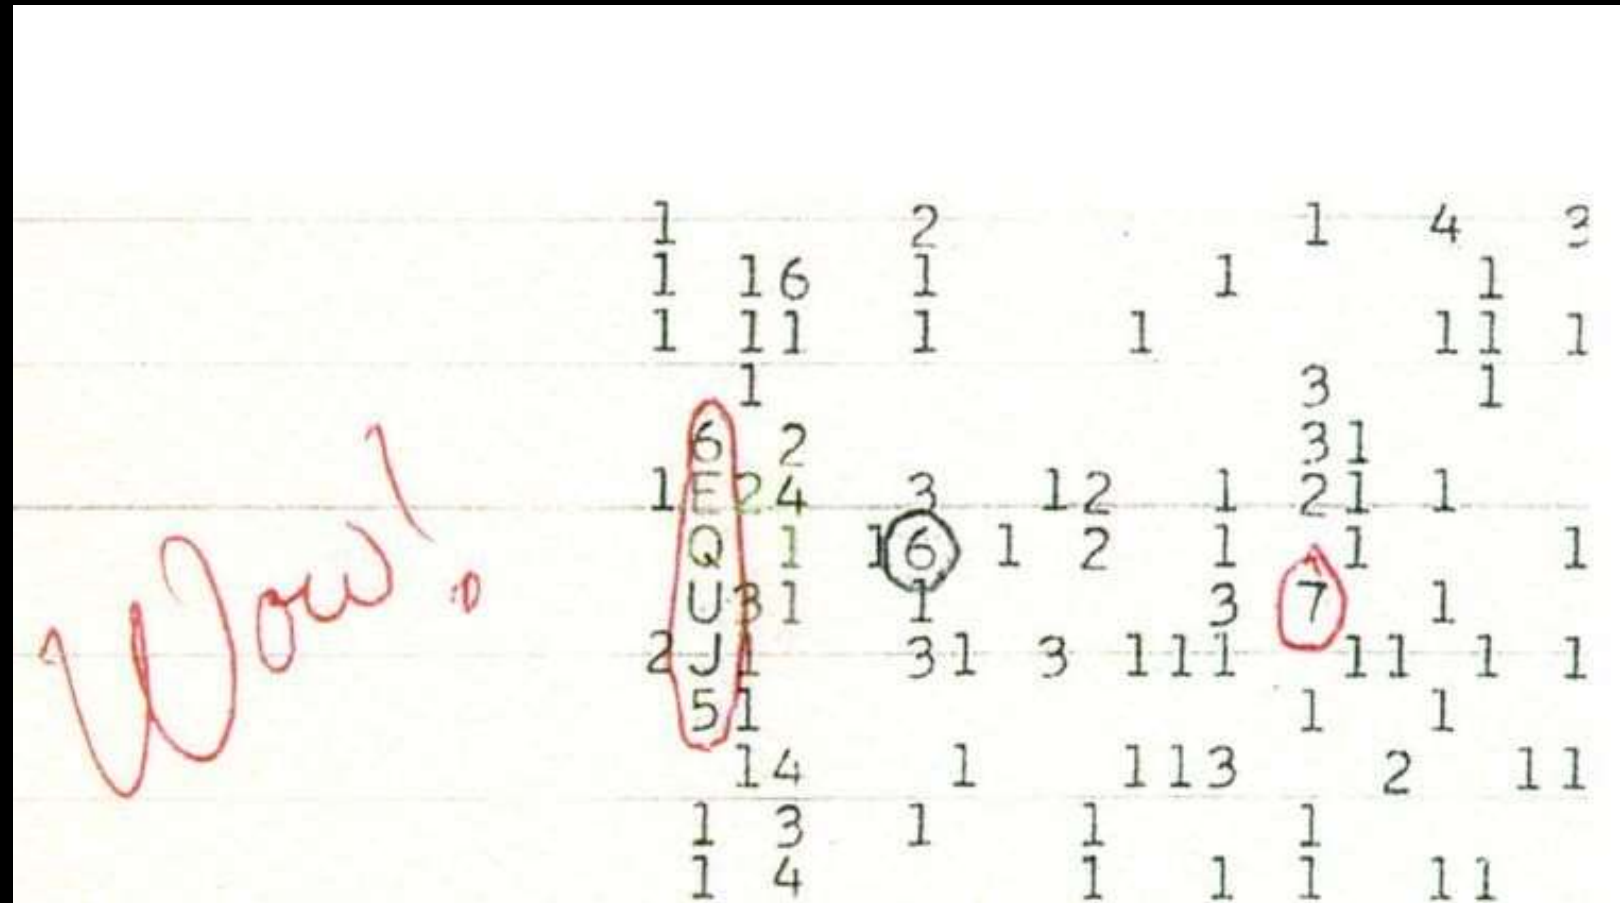 1 2 1 4 3
1 16 1 1 1
1 11 1 1 11 1
1 3 1
6 2 31
1E24 3 12 1 21 1
Q 1 16 1 2 1 1 1
U31 1 3 7 1
2J1 31 3 111 11 1 1
51 1 1
14 1 113 2 11
1 3 1 1 1
1 4 1 1 1 11
Wow!